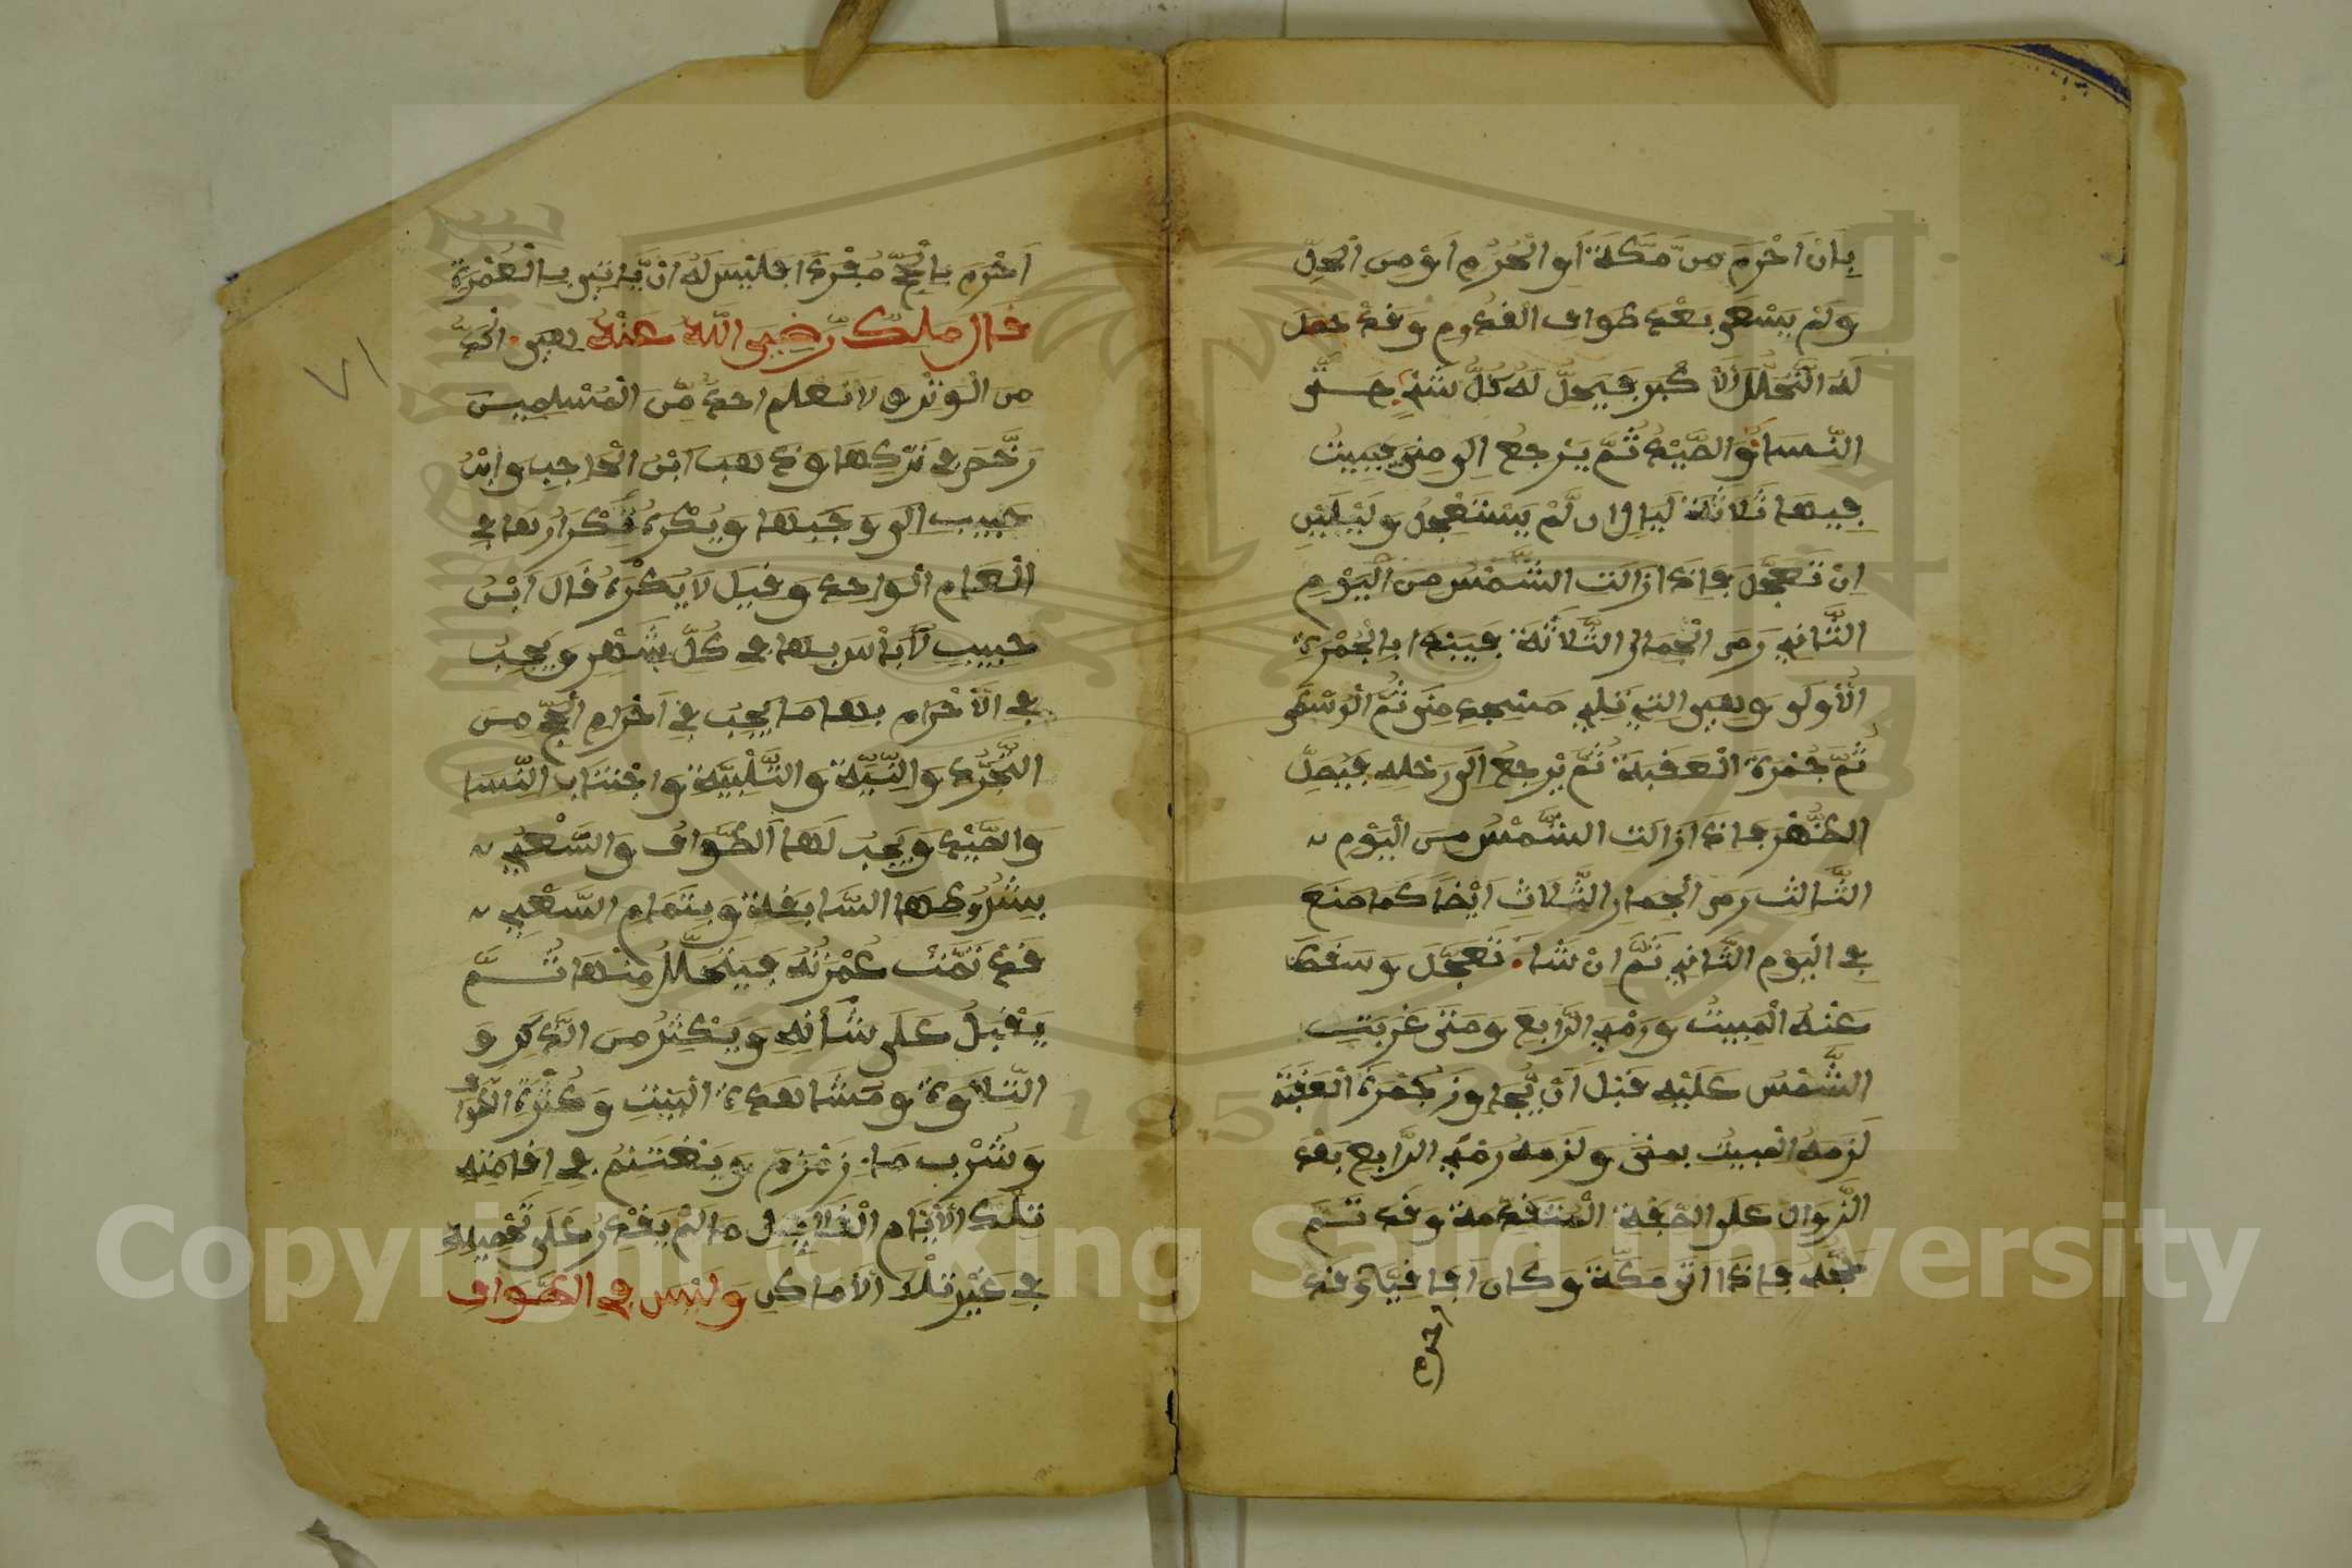 بِاَنْ اَحْرَمَ مِنْ مَّكَّةَ اَوِ الْحَرَمِ اَوْ مِنَ الْحِلِّ
وَلَمْ يَسْعَى بَعْدَ طَوَافِ الْقُدُومِ وَقَدْ حَصَلَ
لَهُ التَّحَلُّلُ الْأَكْبَرُ فَيَحِلُّ لَهُ كُلُّ شَيْءٍ حَتَّى
النِّسَاءُ وَالصَّيْدُ ثُمَّ يَرْجِعُ إِلَى مِنَى يَبِيتُ
فِيهَا ثَلَاثَةَ لَيَالٍ إن لَّمْ يَسْتَعْجِلْ وَلَيْلَتَيْنِ
اِنْ تَعَجَّلَ فَإِذَا زَالَتِ الشَّمْسُ مِنَ الْيَوْمِ
الثَّانِي رَمَى الْجِمَارَ الثَّلَاثَةَ فَيَبْدَا بِالْجُمْرَةِ
الْأُولَى وَهِيَ الَّتِي تَلِي مَسْجِدَ مِنَى ثُمَّ الْوُسْطَى
ثُمَّ جُمْرَةَ الْعَقَبَةِ ثُمَّ يَرْجِعُ اِلَى رَحْلِهِ فَيُصَلِّ
الظُّهْرَ فَإِذَا زَالَتِ الشَّمْسُ مِنَ الْيَوْمِ
الثَّالِثِ رَمَى الْجِمَارَ الثَّلَاثِ اَيْضًا كَمَا صَنَعَ
فِي الْيَوْمِ الثَّانِي ثُمَّ اِنْ شَاءَ تَعَجَّلَ وَسَقَطَ
عَنْهُ الْمَبِيتُ وَرَمْيِ الرَّابِعِ وَمَتَى غَرَبَتِ
الشَّمْسُ عَلَيْهِ قَبْلَ اَنْ يُّجَاوِزَ جُمْرَةَ الْعَقَبَةِ
لَزِمَهُ الْمَبِيتُ بِمِنَى وَلَزِمَهُ رَمْيُ الرَّابِعِ بَعْدَ
الزَّوَالِ عَلَى الصِّفَةِ الْمُتَقَدِّمَةِ وَقَدْ تَمَّ
حَجُّهُ فَإِذَا اَتَى مَكَّةَ وَكَانَ اَفَاقِيًّا وَقَدْ
احرم
اَحْرَمَ بِالْحَجِّ مُفْرِدًا فَلَيْسَ لَهُ اَنْ يَّاتِيَ بِالْعُمْرَةِ
قَالَ مَلِكٌ رَّضِيَ اللَّهُ عَنْهُ هِيَ آكَدُ
مِنَ الْوَتْرِ وَلَا نَعْلَمُ احدًا مِّنَ الْمُسْلِمِينَ
رَخَّصَ فِي تَرْكِهَا وَذَهَبَ ابْنُ الْحَاجِبِ وَابْنُ
حَبِيبٍ اِلَى وَجَبِهَا وَيُكْرَهُ تَكْرَارُهَا فِي
الْعَامِ الْوَاحِدِ وَقِيلَ لَا يُكْرَهُ قَالَ ابْنُ
حَبِيبٍ لَا بَأْسَ بِهَا فِي كُلِّ شَهْرٍ وَيَجِبُ
فِي الْأَحْرَامِ بِهَا مَا يَجِبُ فِي اَحْرَامِ الْحَجِّ مِنَ
التَّجَرُّدِ وَالنِّيَّةِ وَالتَّلْبِيَةِ وَاجْتِنَابِ النِّسَا
وَالصَّيْدِ وَيَجِبُ لَهَا الطَّوَافُ وَالسَّعْيُ
بِشُرُوطِهَا السَّابِقَةِ وَبِتَمَامِ السَّعْيِ
قَدْ تَمَّتْ عُمْرَتُهُ فَيَتَحَلَّلُ مِنْهَا ثُمَّ
يُقْبِلُ عَلَى شَأْنِهِ وَيُكْثِرُ مِنَ الذِّكْرِ وَ
التِّلَاوَةِ وَمَشَاهَدَةِ الْبَيْتِ وَكُثْرَةِ الطَّوَافِ
وَشُرْبِ مَاءِ زَمْزَمَ وَيَغْتَنِمُ فِي اِقَامَتِهِ
تِلْكَ الْأَيَّامِ الْقَلَائِلِ مَا لَمْ يَقْدِرُ عَلَى تَحْصِيلِهِ
فِي غَيْرِ تِلْكَ الْأَمَاكِنِ وَلَيْسَ فِي الطَّوَافِ
٧١
1957
Copyright © King Saud University